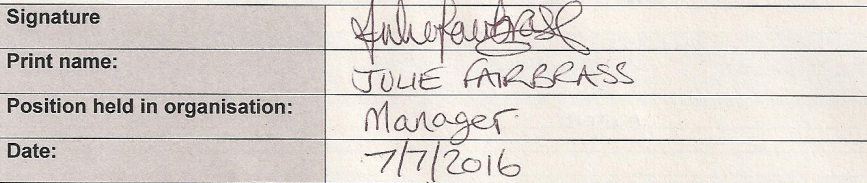 Signature JulieFairbrass
Print name: JULIE FAIRBRASS
Position held in organisation: Manager
Date: 7/7/2016